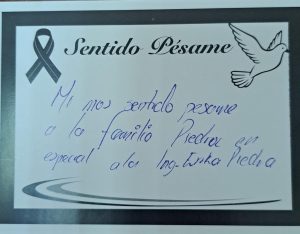 Sentido Pésame
Mi mas sentido pesame
a la familia Piedra en
especial a la Ing. Erika Piedra